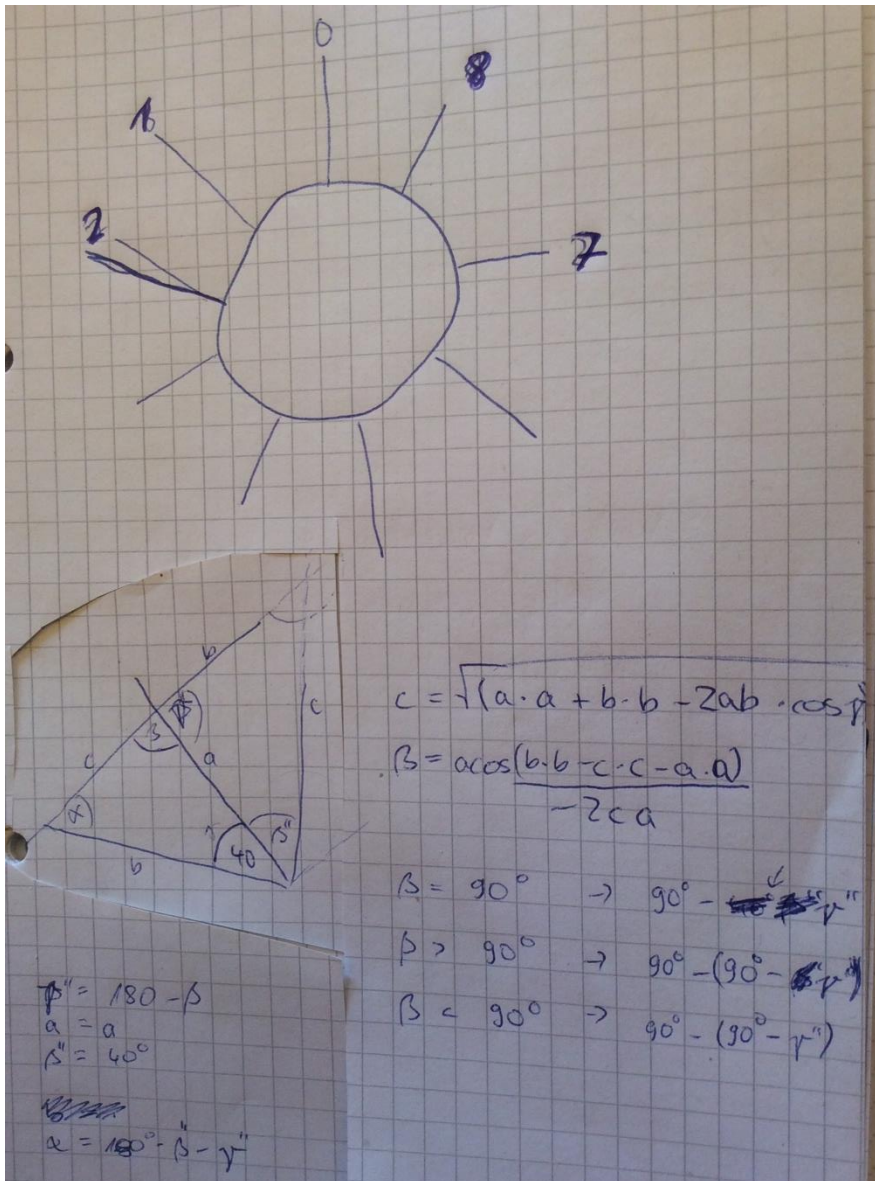 0
8
1
2
7
b
c
β
a
c
α
b
40
β"
c = √(a·a + b·b - 2ab · cos γ
β = acos(b·b - c·c - a·a)
-2ca
β = 90° → 90° - γ"
β > 90° → 90° - (90° - γ")
β < 90° → 90° - (90° - γ")
γ" = 180 - β
a = a
β" = 40°
α = 180° - β" - γ"